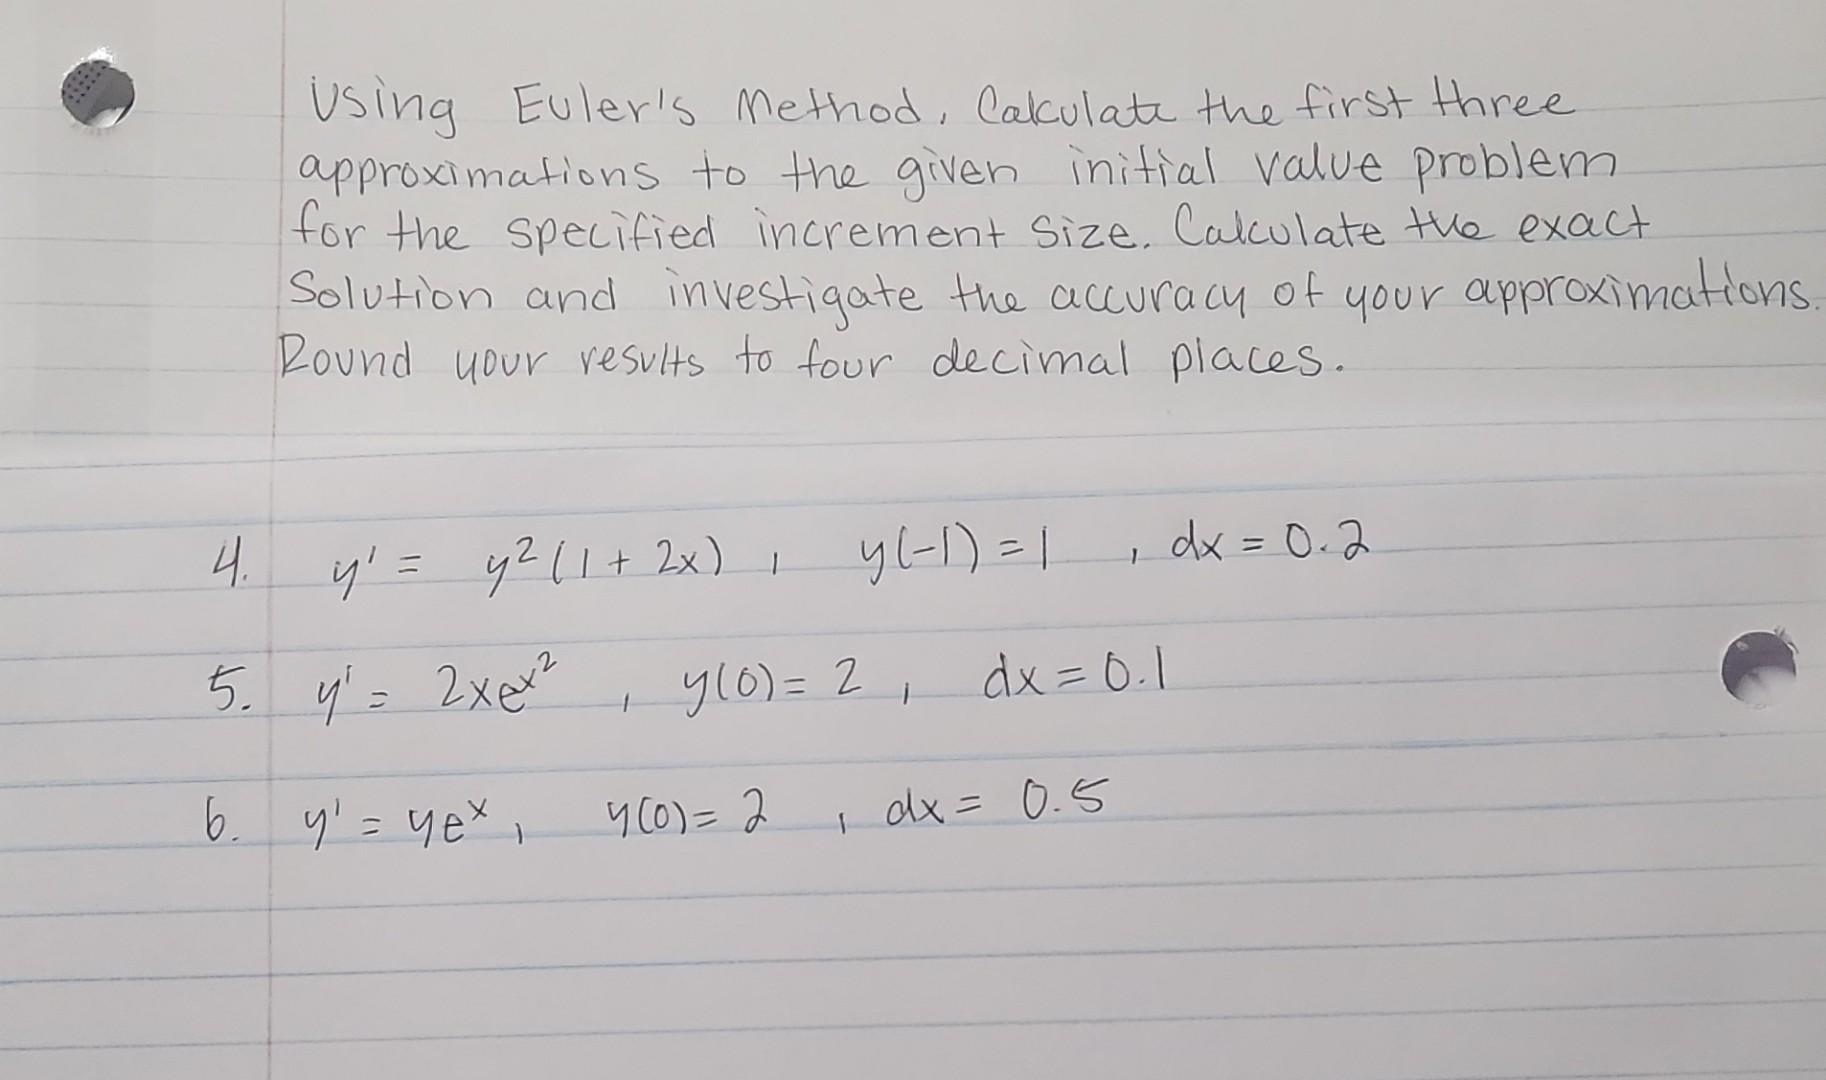 Using Euler's Method, Calculate the first three
approximations to the given initial value problem
for the specified increment size. Calculate the exact
Solution and investigate the accuracy of your approximations.
Round your results to four decimal places.
4. y' = y²(1 + 2x), y(-1) = 1, dx = 0.2
5. y' = 2xeˣ², y(0) = 2, dx = 0.1
6. y' = yeˣ, y(0) = 2, dx = 0.5